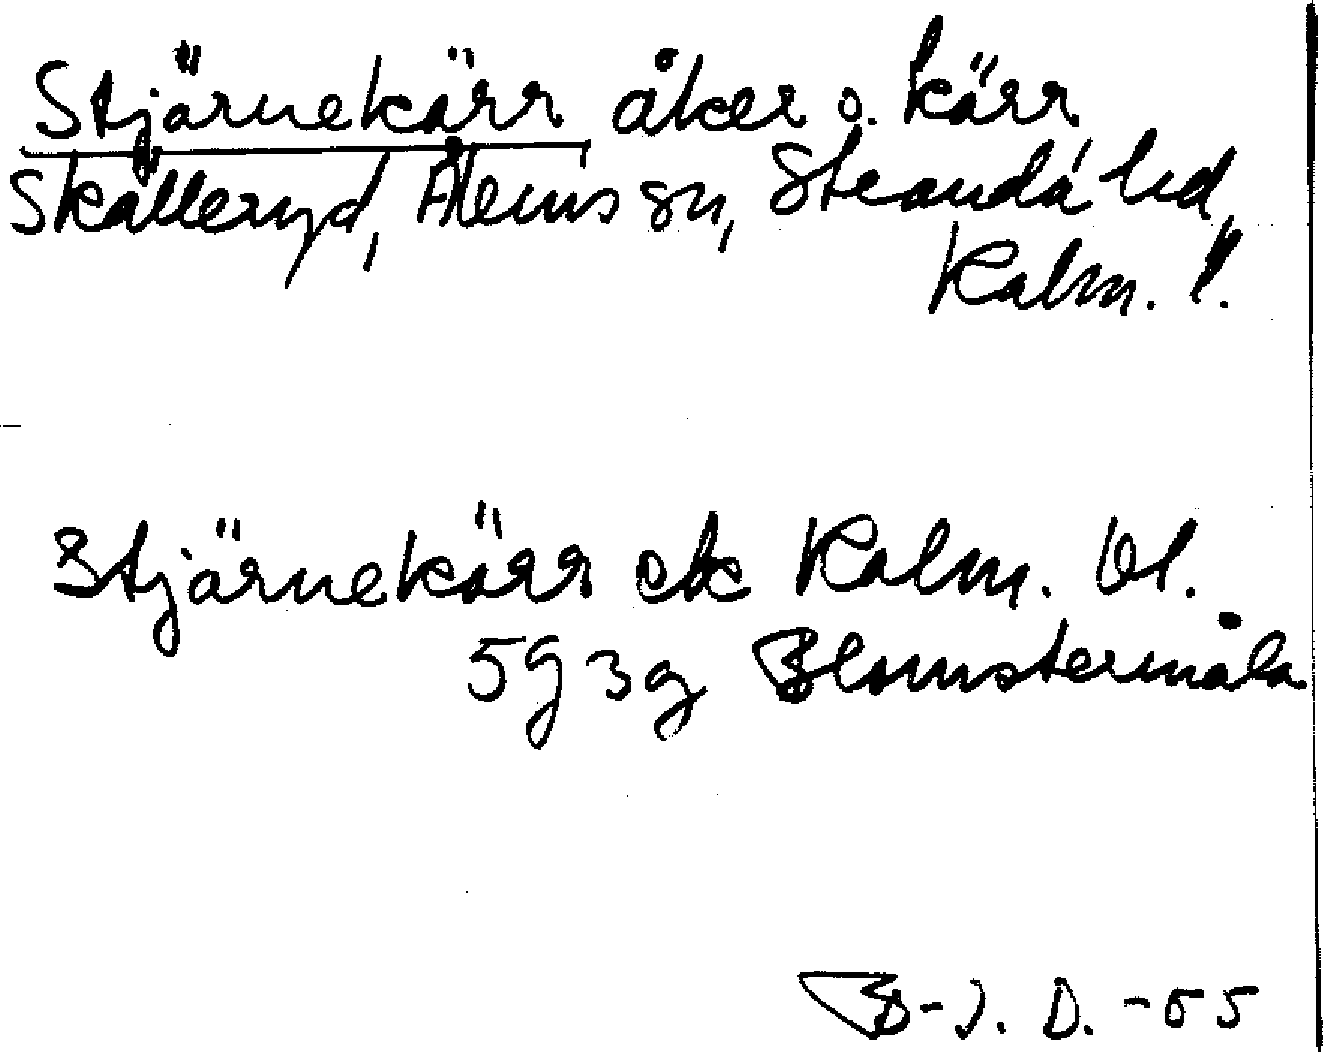 Stjärnekärr åker o. kärr
Skälleryd, Ålems sn, Stranda hd,
Kalm. l.
Stjärnekärr ek Kalm.
5g 3g Blomstermåla
B-J. D. -55